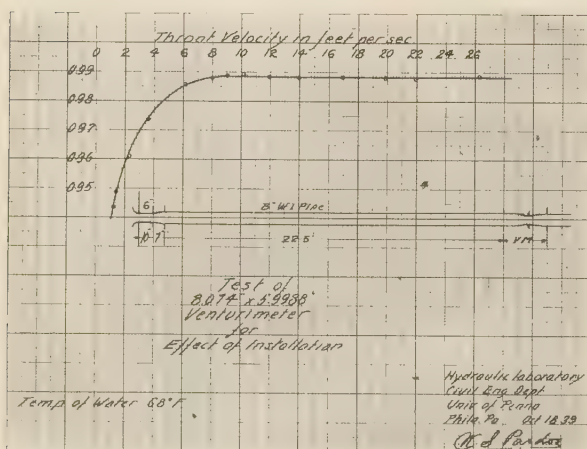 Throat Velocity in feet per sec
0 2 4 6 8 10 12 14 16 18 20 22 24 26
0.99
0.98
0.97
0.96
0.95
6"
8" W.I. Pipe
22.5'
V.M.
Test of
8.074" x 5.9938"
Venturimeter
for
Effect of Installation
Temp of Water 68°F
Hydraulic laboratory
Civil Eng. Dept
Univ of Penna
Phila. Pa. Oct 18.39
W S Pardoe